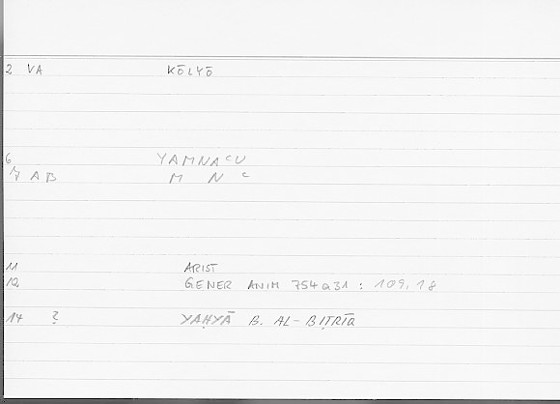 2 VA KŌLYŌ
6 YAMNAᶜU
7 AB M N ᶜ
11 ARIST
12 GENER ANIM 754a31 : 109,18
14 ? YAḤYĀ B. AL-BIṬRĪQ